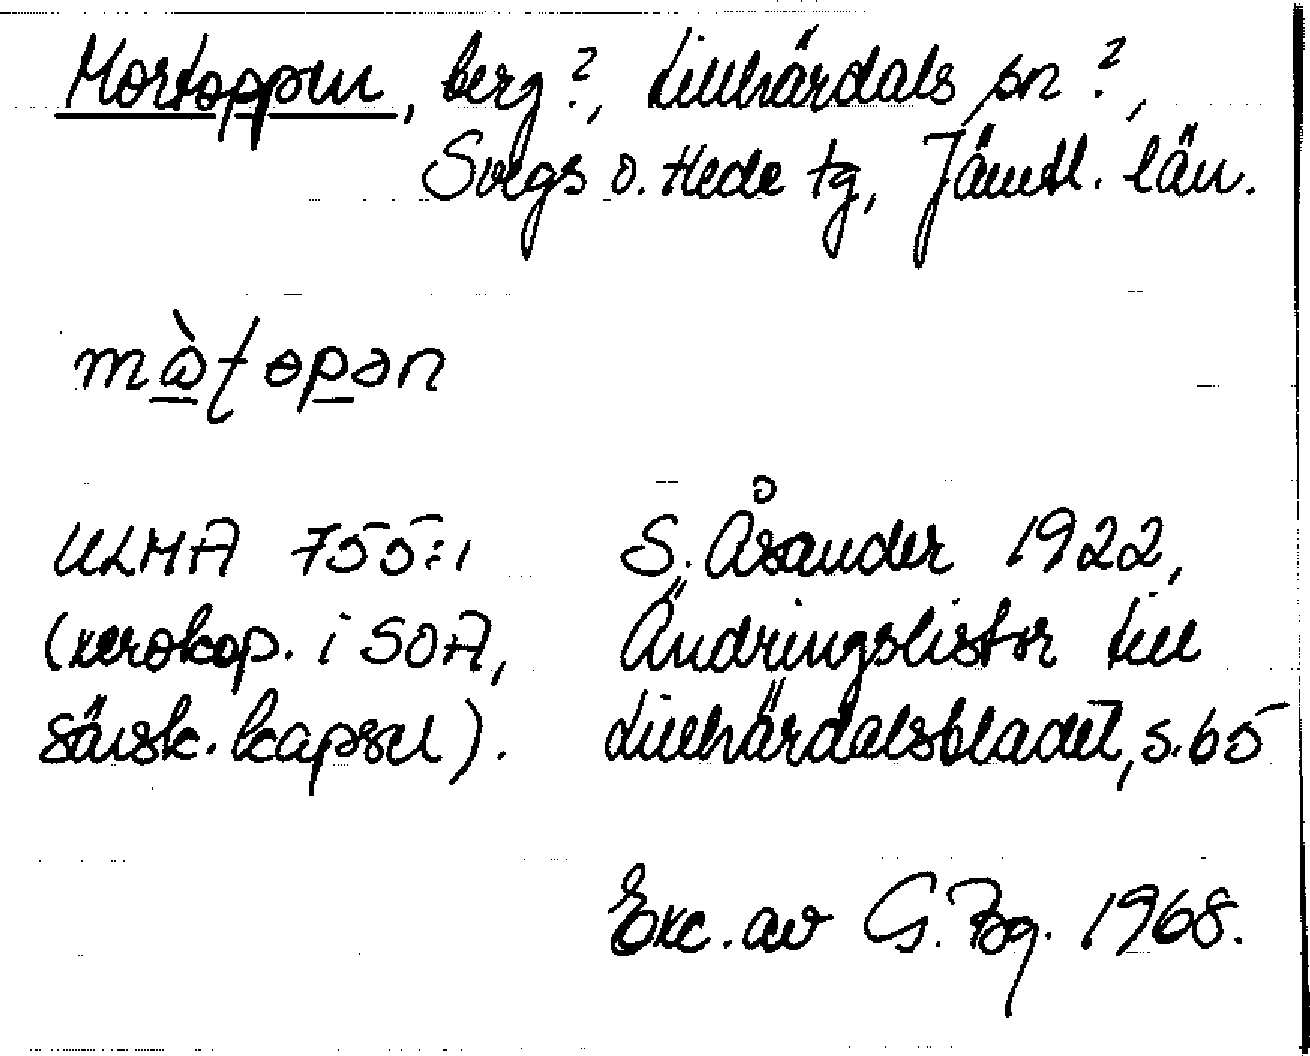 Mortoppen, berg?, Lillhärdals sn?,
Svegs o. Hede tg, Jämtl. län.
ULMA 755:1
(xerokop. i SOA,
särsk. kapsel).
S. Åsander 1922,
Ändringslistor till
Lillhärdalsbladet, s. 65
Exc. av G. Bg. 1968.